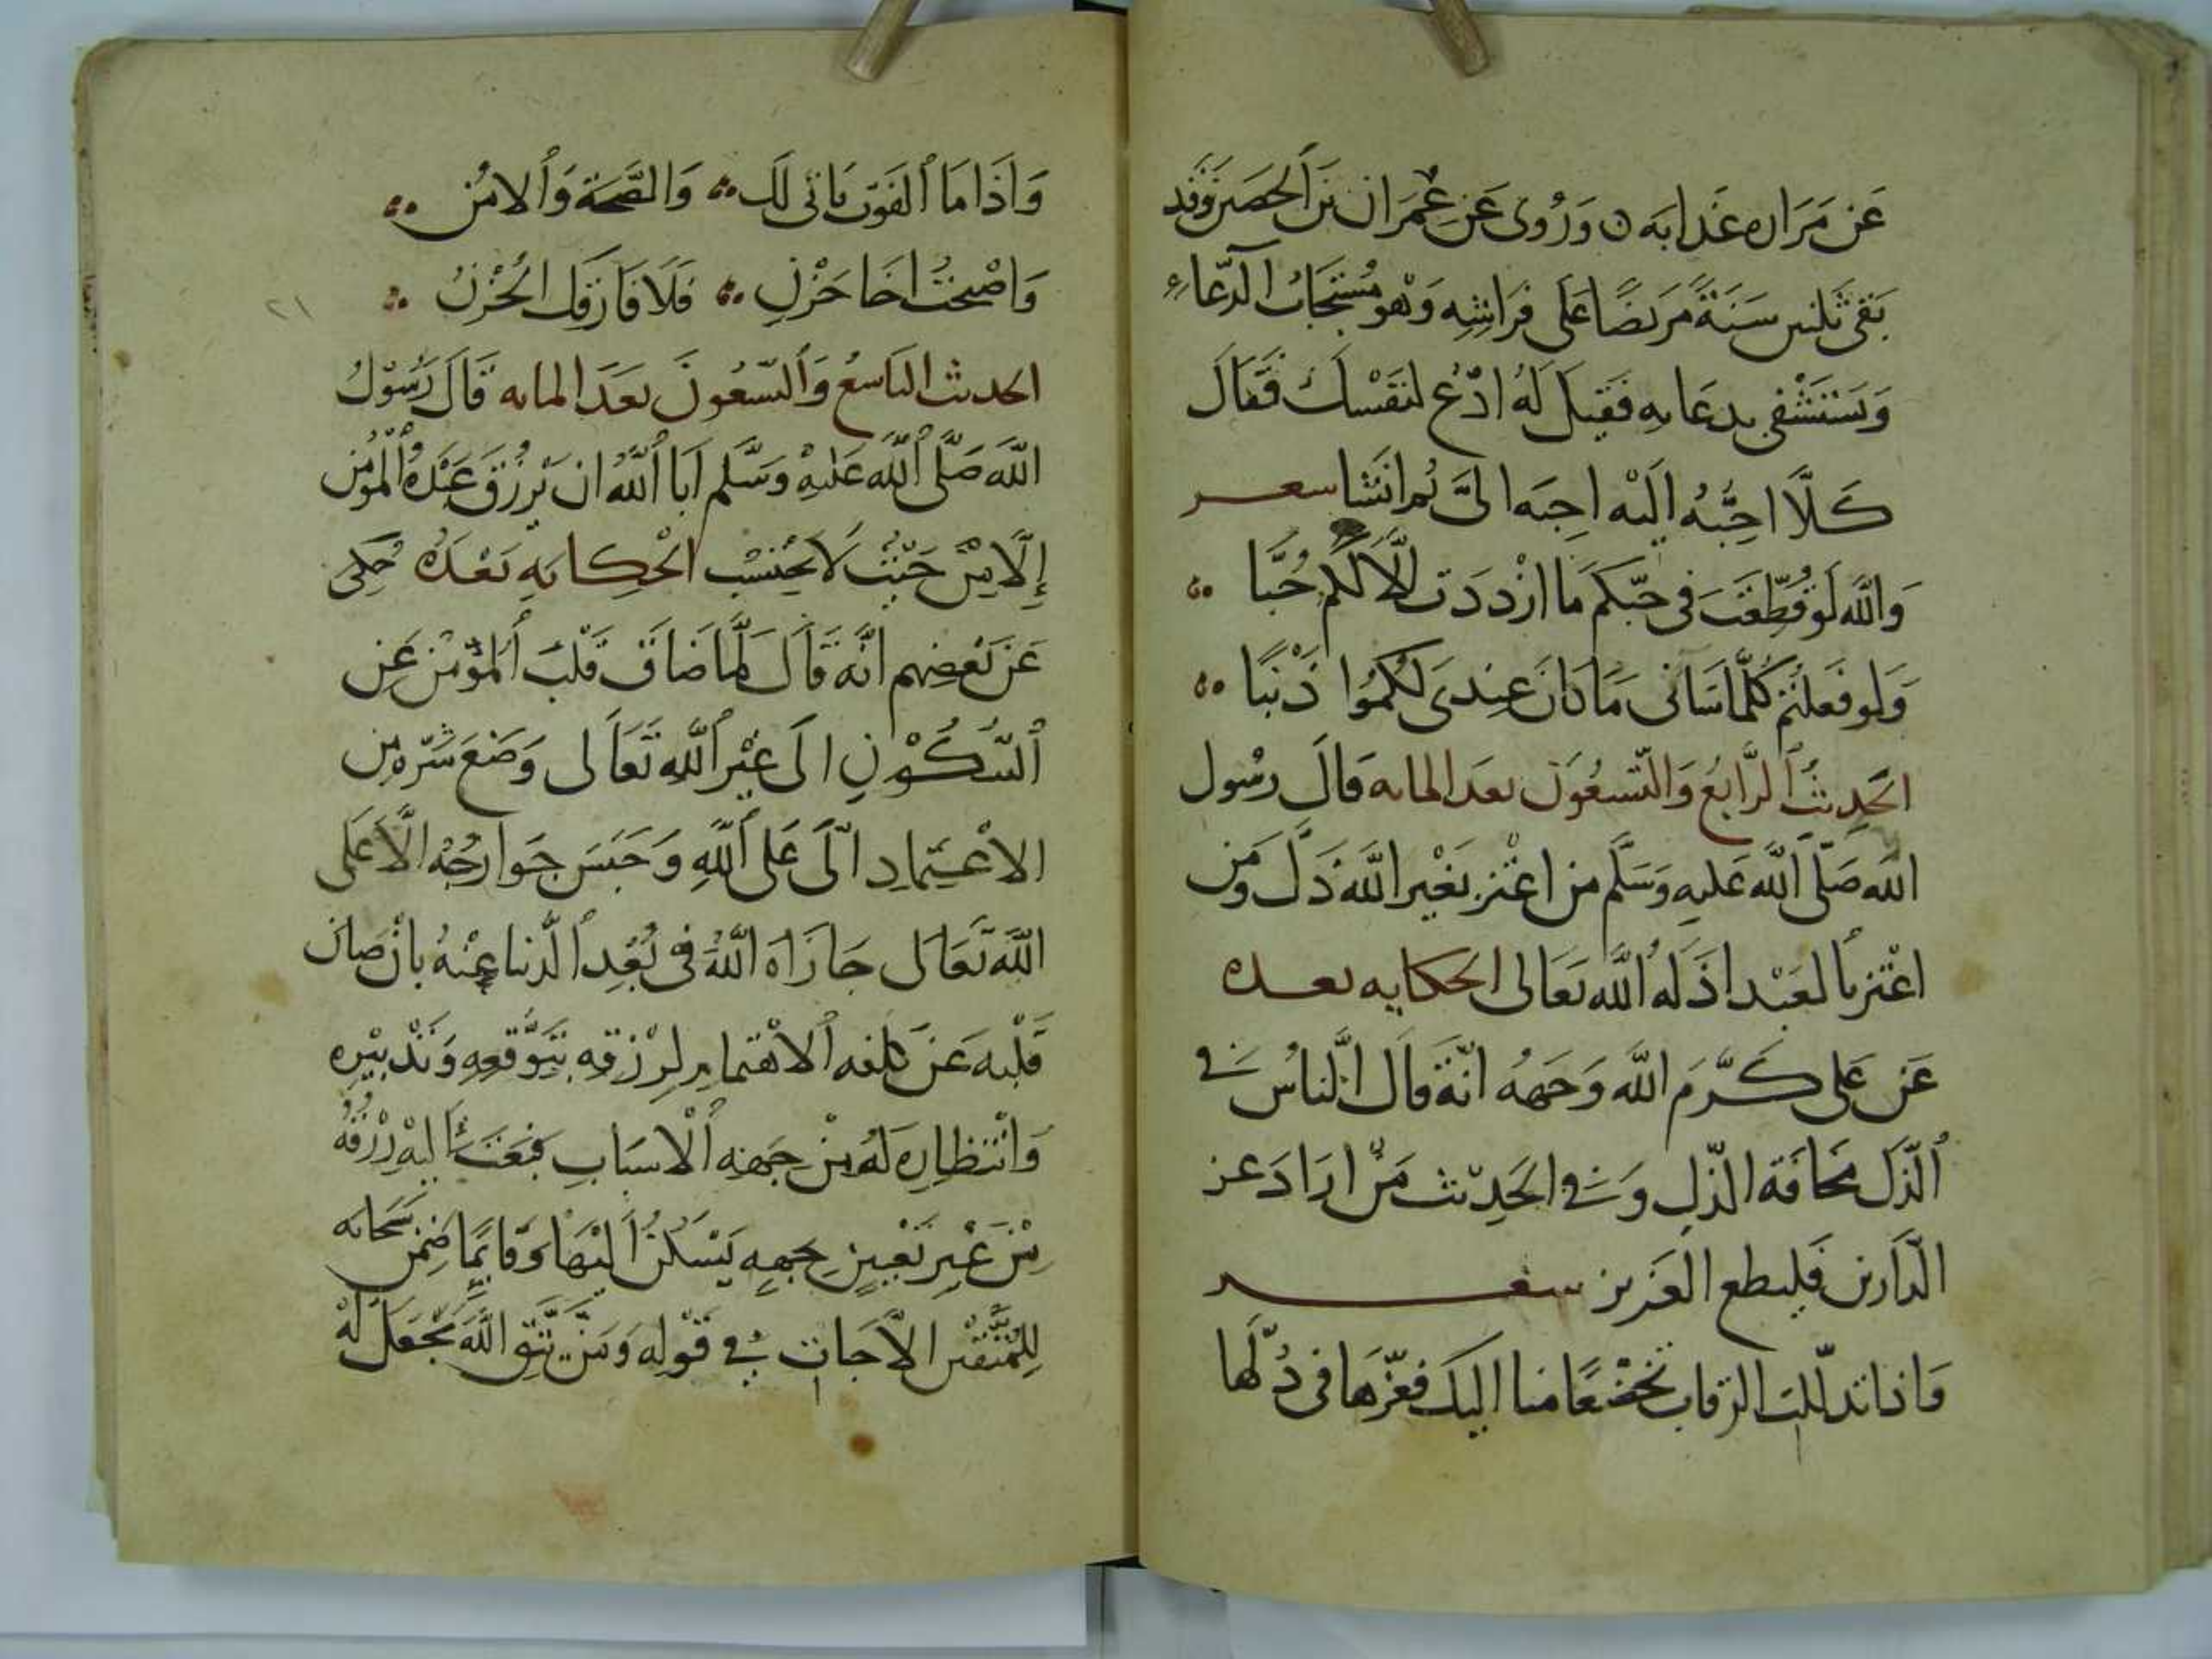 عَن مَرَاره عَذابَه ن وَرُوى عَن عِمْرَان بن الحصين وَقد
بَقى ثلثين سَنَةً مَريضًا عَلى فرَاشِه وَهو مُسْتجَاب الدّعَاء
وَيسْتشْفى بدعَايه فَقيل لَهُ ادْع لنفسك فَقالَ
كَلّا احِبّهُ اليْه احِبَه الىَّ ثم انشا شعر
وَالله لَو قُطّعْتَ فى حبّكم مَا ازْددَت الّا لكم حُبَّا
وَلو فَعلتُم كلّما سَانى مَا كانَ عِندى لكمُوا ذَنْبًا
الحَدِيثُ الرَّابعُ وَالتّسعُونَ بعَد المايه قالَ رسُول
الله صَلّى اللَّه عَليهِ وَسَلَّم من اعْتز بغَيْر اللَّه ذَلّ وَمَن
اعْتز بالعَبْد اذَلهُ اللَّه تعَالى الحكايه بعده
عَن عَلى كَرَّمَ الله وَجَههُ انّهَ قالَ النّاسُ فى
الذّل مَخافَة الذّلِ وَفى الحَدِيْث مَنْ ارَادَ عز
الدّارين فَليطع العَزيز شعر
وَاذا تذللت الرّقاب تخضّعًا منا اليك فعزّهَا فى ذُلّها
وَاذَا مَا القَوت يَاتى لَك وَالصّحَة وَالامْن
وَاصْبحْتُ اخَا حَزْنٍ فَلَا فَارَقَك الحُزْنُ
٢١
الحديث التاسعُ وَالتسْعُونَ بعَدَ المايه قَالَ رَسُوْلُ
اللَّه صَلَّى اللَّه عَليْهِ وَسَلّم ابَا اللَّهُ ان يَرْزُقَ عَبْدَهُ المُؤمن
إِلّا مِنْ حَيْثُ لَا يَحْتسِبْ الْحِكايَهِ بَعْدَهُ حُكِى
عَن بَعْضِهم انّه قَالَ لمّا ضَاقَ قَلبَ المؤمْن عَن
السُكُوْنِ الَى غَيْر اللَّهِ تعَالى وَضعَ سّره مِن
الاعْتِمادِ الّى عَلى اللَّهِ وَحَبَسَ جَوارحُهُ الّا عَلى
اللَّه تعَالى جَازَاهَ اللَّهُ فى بُعْدِ الدّنيا عِنْهُ بانْ صانَ
قَلْبه عَن كلفه الاهْتمام لِرزقه بتوَقّعِهِ وَتدْبيْرِه
وَانْتظارِه لَهُ مِنْ جهَة الْاسبَابِ فبَعَثَ اليْه رزْقُهُ
مِنْ غيرِ تعْيِينِ جهِهِ يَسْكُنُ اليْهَا وَفَا بمَا ضمِنْ سُبحانه
لِلمتّقين الاجَابَات فى قَوْلِه وَمَنْ يَتَّقِ اللَّه يجْعَل لهُ